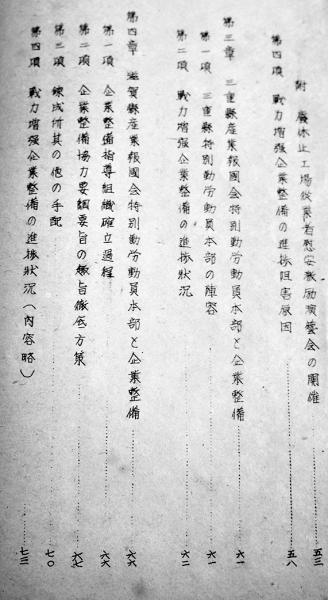 附 廢休止工場從業者慰安激励演藝会の開催 五三
第四項 戰力増强企業整備の進捗阻害原因 五八
第三章 三重縣産業報國会特別勤労動員本部と企業整備 六一
第一項 三重縣特別勤労動員本部の陣容 六一
第二項 戰力増强企業整備の進捗狀況 六二
第四章 滋賀縣産業報國会特別勤労動員本部と企業整備 六六
第一項 企業整備指導組織確立過程 六六
第二項 企業整備協力要綱要旨の趣旨徹底方策 六七
第三項 錬成付其の他の手配 七〇
第四項 戰力増强企業整備の進捗狀況（内容略） 七三